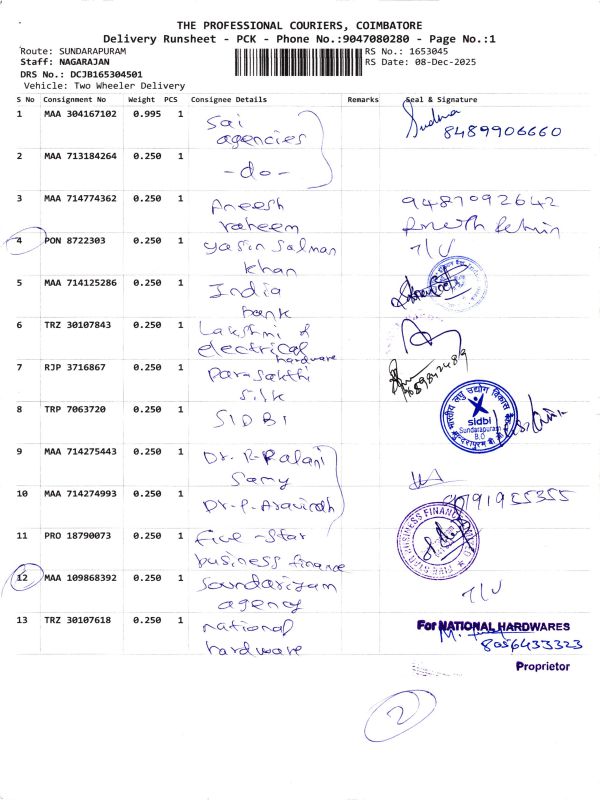 THE PROFESSIONAL COURIERS, COIMBATORE
Delivery Runsheet - PCK - Phone No.:9047080280 - Page No.:1
Route: SUNDARAPURAM RS No.: 1653045
Staff: NAGARAJAN RS Date: 08-Dec-2025
DRS No.: DCJB165304501
Vehicle: Two Wheeler Delivery
S No Consignment No Weight PCS Consignee Details Remarks Seal & Signature
1 MAA 304167102 0.995 1 Sai
agencies
Sudha
8489906660
2 MAA 713184264 0.250 1 -do-
3 MAA 714774362 0.250 1 Aneesh
raheem
9487092642
4 PON 8722303 0.250 1 yasin Salman
khan
7/U
5 MAA 714125286 0.250 1 India
bank
6 TRZ 30107843 0.250 1 Lakshmi
electrical
hardware
7 RJP 3716867 0.250 1 Parasakthi
Silk
8 TRP 7063720 0.250 1 SIDBI
sidbi
Sundarapuram
B.O
9 MAA 714275443 0.250 1 Dr. R. Palani
Samy
10 MAA 714274993 0.250 1 Dr. P. Aravindh
11 PRO 18790073 0.250 1 five -Star
business finance
12 MAA 109868392 0.250 1 Soundariyam
agency
7/U
13 TRZ 30107618 0.250 1 national
hardware
For NATIONAL HARDWARES
8056433323
Proprietor
2